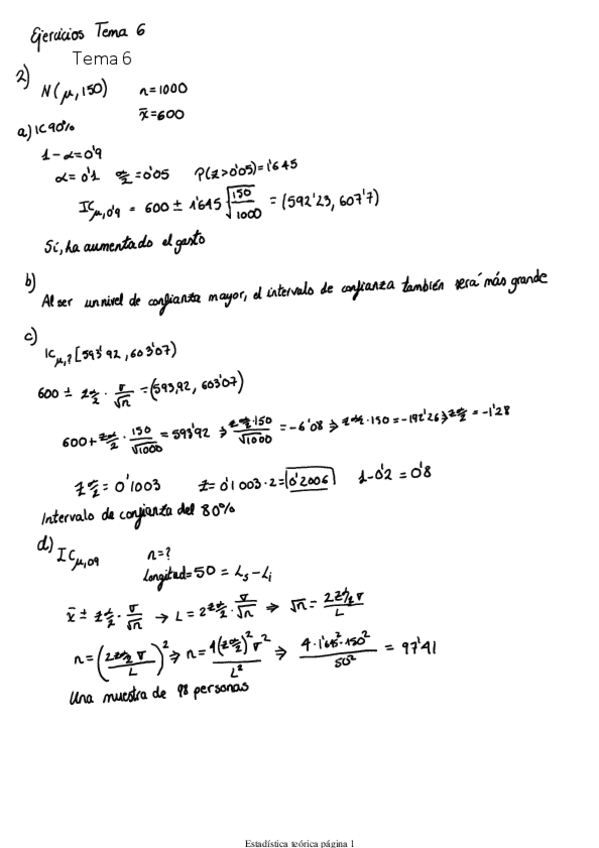 Ejercicios Tema 6
Tema 6
2) N(μ,150) n=1000
x̄=600
a) IC 90%
1-α=0'9
α=0'1 α/2=0'05 P(Z>0'05)=1'645
IC μ,0'9 = 600 ± 1'645 √150/√1000 = (592'23, 607'7)
Sí, ha aumentado el gasto
b)
Al ser un nivel de confianza mayor, el intervalo de confianza también será más grande
c)
IC μ,? [593'92, 603'07)
600 ± z α/2 · σ/√n = (593,92, 603'07)
600 + z α/2 · 150/√1000 = 593'92 ⇒ z α/2 · 150/√1000 = -6'08 ⇒ z α/2 · 150 = -192'26 ⇒ z α/2 = -1'28
z α/2 = 0'1003 z = 0'1003·2 = 0'2006 1-0'2 = 0'8
Intervalo de confianza del 80%
d) IC μ,09 n=?
Longitud=50 = Ls-Li
x̄ ± z α/2 · σ/√n → L = 2 z α/2 · σ/√n ⇒ √n = 2 z α/2 σ/L
n = (2 z α/2 σ/L)² ⇒ n = 4(z α/2)² σ²/L² ⇒ 4·1'645²·150²/50² = 97'41
Una muestra de 98 personas
Estadística teórica página 1